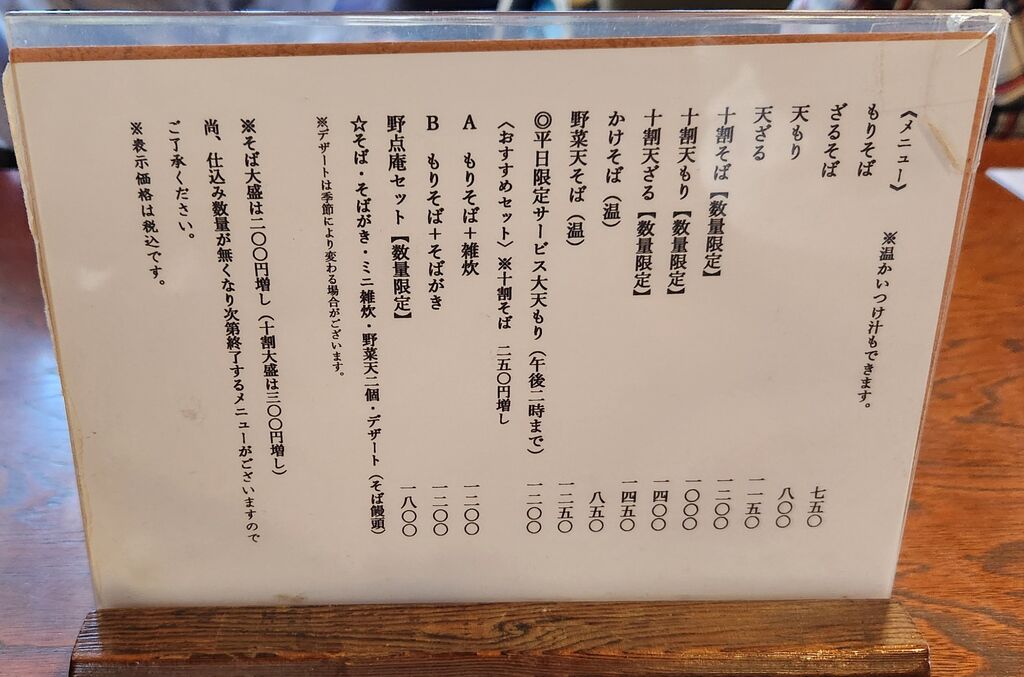 《メニュー》 ※温かいつけ汁もできます。
もりそば 七五〇
ざるそば 八〇〇
天もり 一一五〇
天ざる 一二〇〇
十割そば【数量限定】 一〇〇〇
十割天もり【数量限定】 一四〇〇
十割天ざる【数量限定】 一四五〇
かけそば（温） 八五〇
野菜天そば（温） 一二五〇
◎平日限定サービス大天もり（午後二時まで） 一二〇〇
〈おすすめセット〉※十割そば 二五〇円増し
A もりそば＋雑炊 一二〇〇
B もりそば＋そばがき 一二〇〇
野点庵セット【数量限定】 一八〇〇
☆そば・そばがき・ミニ雑炊・野菜天二個・デザート（そば饅頭）
※デザートは季節により変わる場合がございます。
※そば大盛は二〇〇円増し（十割大盛は三〇〇円増し）
尚、仕込み数量が無くなり次第終了するメニューがございますので
ご了承ください。
※表示価格は税込です。